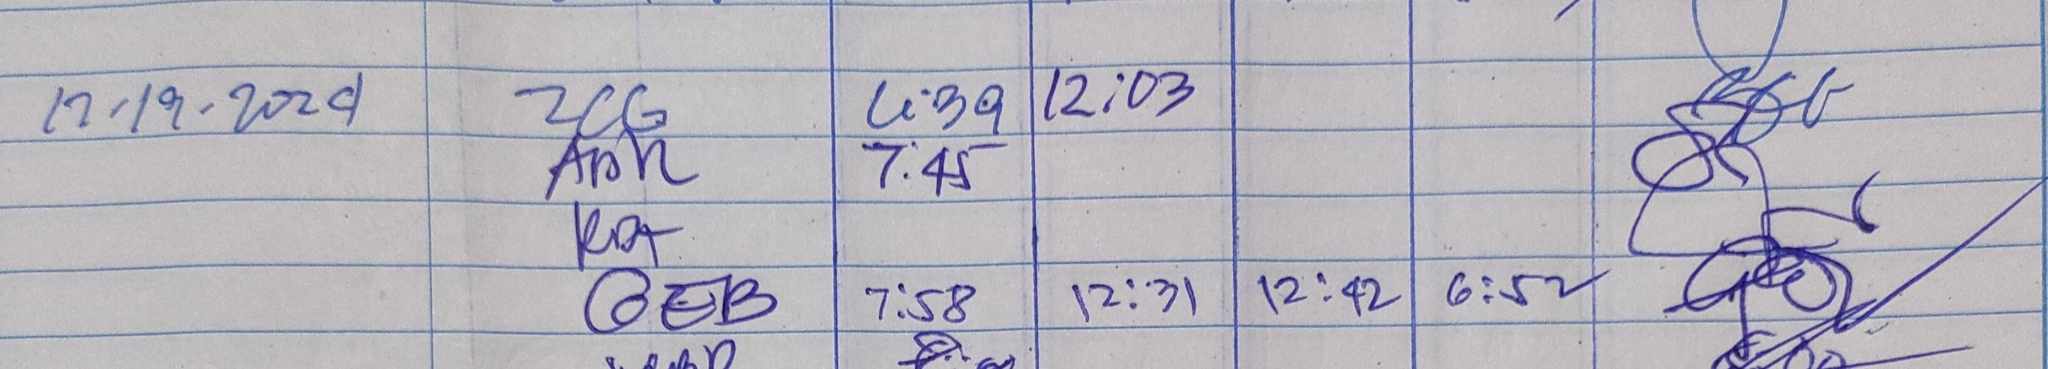 12-19-2024 ZCG 6:39 12:03
ADR 7:45
KDA
GEB 7:58 12:31 12:42 6:52